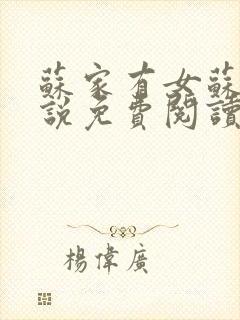 蘇家有女蘇
說免費閱讀
楊偉廣